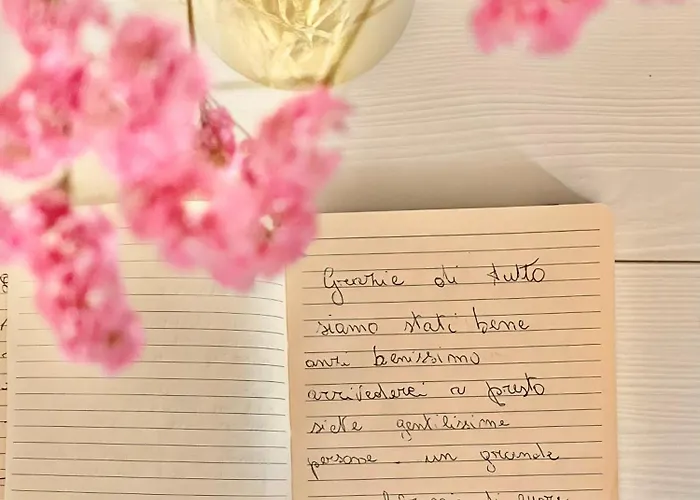 Grazie di tutto
siamo stati bene
anzi benissimo
arrivederci a presto
siete gentilissime
persone un grande
di cuore